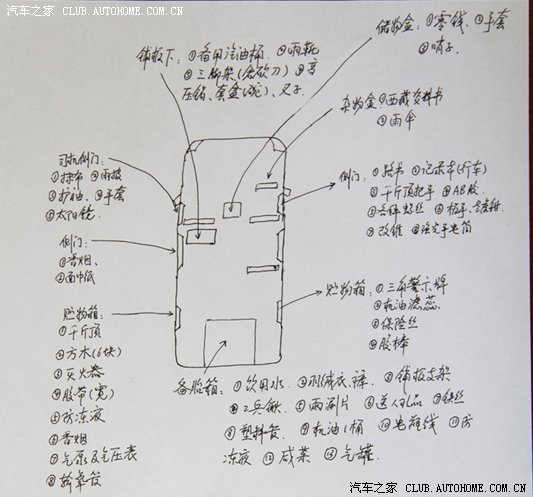 汽车之家 CLUB.AUTOHOME.COM.CN
储物盒：①零钱、②手套
③哨子
铺板下：①备用汽油桶、②雨靴
③三脚架(含砍刀) ④高
压锅、套盒(碗)、叉子
杂物盒①西藏资料书
②雨伞
司机侧门：
①抹布 ②雨披
③护油、④手套
⑤太阳镜
侧门：①路书 ②记录本(行车)
③千斤顶把手 ④AB胶
⑤各种螺丝
⑦改锥 ⑧手电筒
侧门：
①香烟、
②面巾纸
贮物箱：
①千斤顶
②方木(6块)
③灭火器
④胶带(宽)
⑤防冻液
⑥香烟
⑦气泵及气压表
⑧输氧管
贮物箱：①三角警示牌
②机油滤芯
③保险丝
④胶棒
备胎箱：①饮用水、②羽绒衣、裤 ③铺板支架
④工兵锹、⑤雨刷片 ⑥送人礼品 ⑦铁丝
⑧塑料管、⑨机油1桶 ⑩电瓶线 ⑪防
冻液 ⑫咸菜 ⑬气罐
汽车之家 CLUB.AUTOHOME.COM.CN